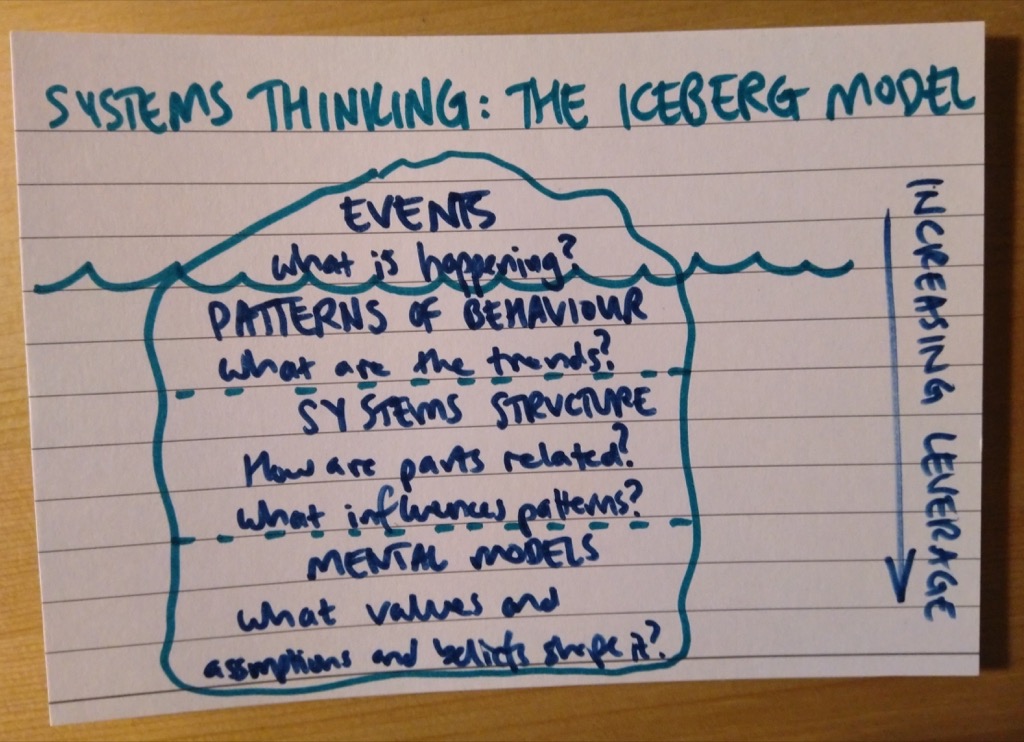 SYSTEMS THINKING: THE ICEBERG MODEL
EVENTS
what is happening?
PATTERNS OF BEHAVIOUR
what are the trends?
SYSTEMS STRUCTURE
How are parts related?
what influences patterns?
MENTAL MODELS
what values and
assmptions and beliefs shape it?
INCREASING LEVERAGE